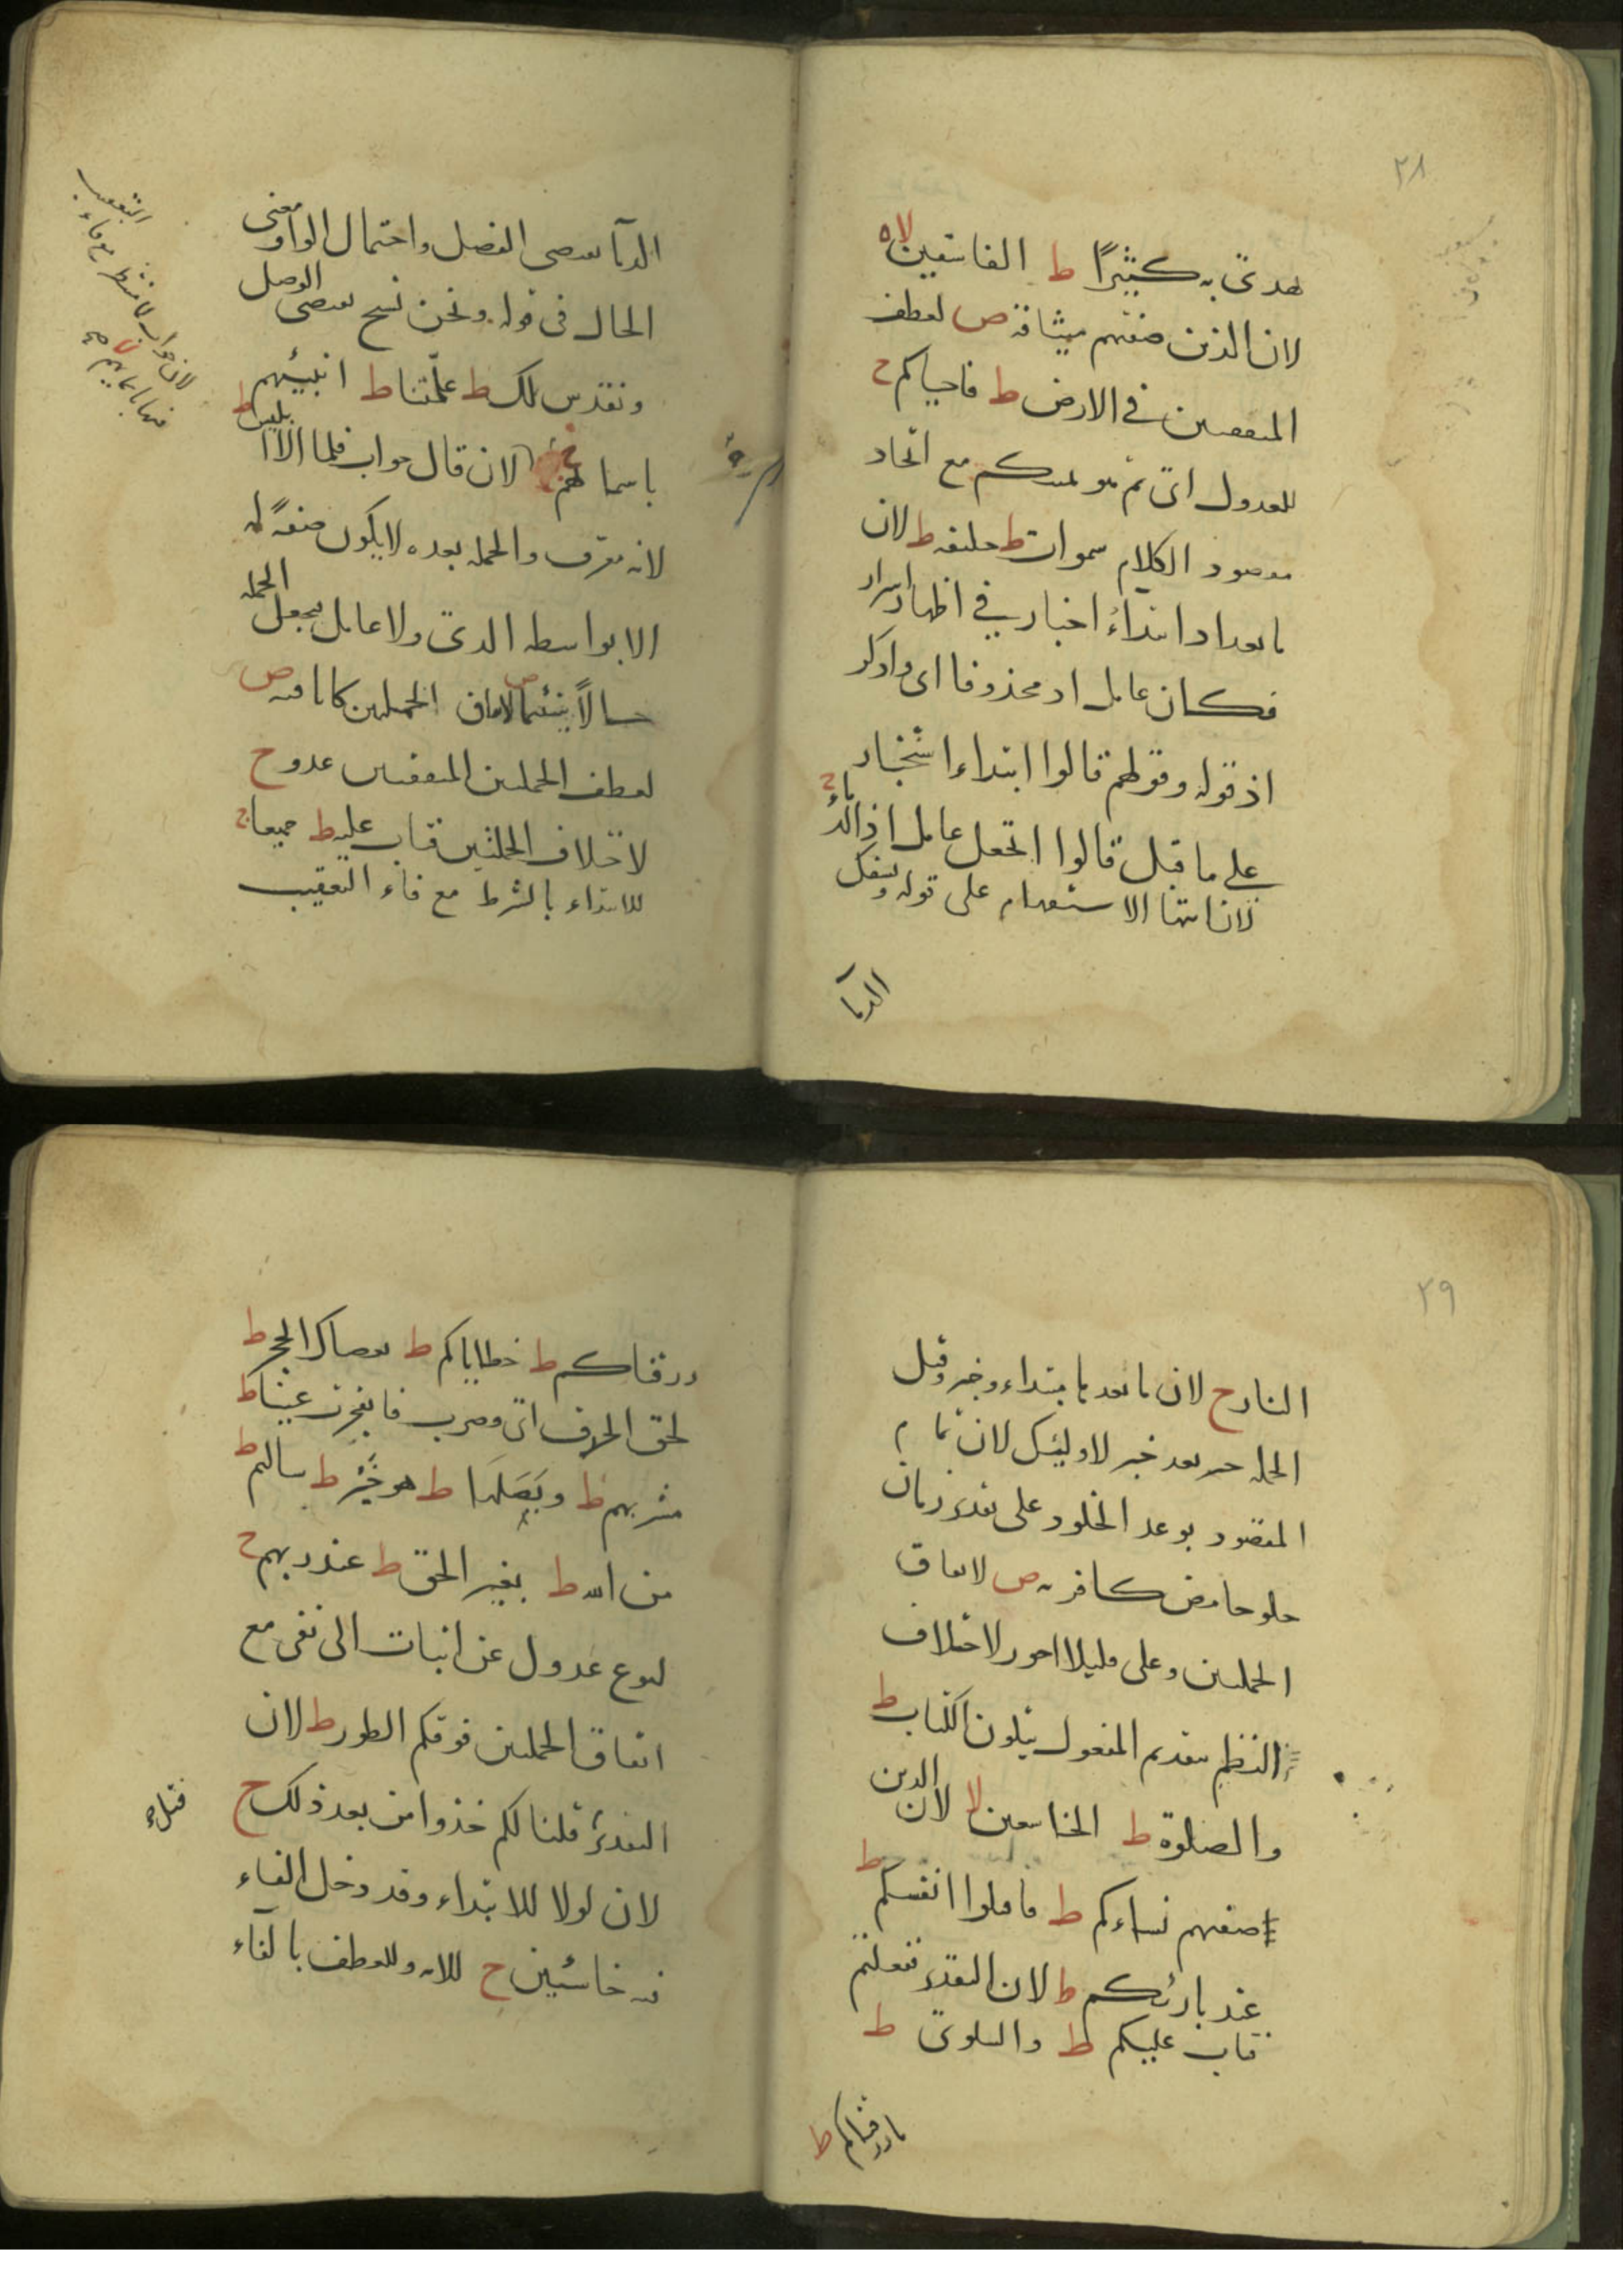 ٢٨
هدى به كثيرًا ط الفاسقين لا ه
لان الذين صفتهم ميثاقه ص لعطف
المتفقتين في الارض ط فاحياكم ج
للعدول اى ثم هو يميتكم مع اتحاد
مقصود الكلام سموات ط خليفه ط لان
ما بعد ابتداء اخبار في اظهار اسرار
فكان عامل اذ محذوفا اى واذكر
اذ قوله وقولهم قالوا ابتداء اخبار
على ما قبل قالوا اتجعل عامل اذ الدماء ج
لان انتها الاستفهام على قوله ويسفك
الدمآ
الدمآ يقتضى الفصل واحتمال الواو معنى
الحال فى قوله ونحن نسبح يقتضى الوصل
ونقدس لك ط علّمتنا ط انبئهم
باسمائهم ج لان قال جواب فلما الا ابليس ط
لانه معرف والجمله بعده لا يكون صفةً له
الا بواسطه الذى ولا عامل يجعل الجمله
حالاً شئتما ص لاتفاق الجملتين كانا فيه ص
لعطف الجملتين المتفقتين عدو ج
لاختلاف الجملتين فتاب عليه ط جميعا ج
للابتداء بالشرط مع فاء التعقيب
التعقيب
٢٩
النار ج لان ما بعدها مبتداء وخبر وقيل
الجمله خبر بعد خبر لاوليئك لان تمام
المقصود بوعد الخلود على تقدير زمان
حلو حامض كافر به ص لاتفاق
الجملتين وعلى قليلا اجوز لاختلاف
النظم بتقديم المفعول يتلون الكتاب ط
والصلوة ط الخاشعين لا لان الذين
صفتهم نساءكم ط فاقتلوا انفسكم ط
عند بارئكم ط لان التقدير ففعلتم
فتاب عليكم ط والسلوى ط
ما رزقناكم ط
رزقناكم ط خطاياكم ط بعصاك الحجر ط
لحق الحذف اى فضرب فانفجرت عينا ط
مشربهم ط وبصلها ط هو خير ط سالتم ط
من الله ط بغير الحق ط عند ربهم ج
لنوع عدول عن اثبات الى نفى مع
اتفاق الجملتين فوقكم الطور ط لان
التقدير قلنا لكم خذوا من بعد ذلك ج
لان لولا للابتداء وقد دخل الفاء
فيه خاسئين ج للايه وللعطف بالفاء